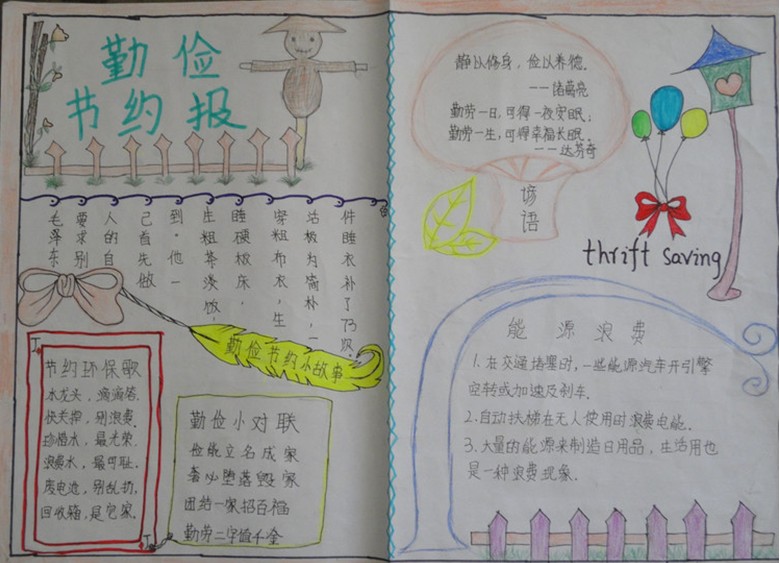 勤俭
节约报
毛泽东
要求别
人的自
己首先做
到。他一
生粗茶淡饭,
睡硬板床,
穿粗布衣,生
活极为简朴,一
件睡衣补了73次,
勤俭节约小故事
节约环保歌
水龙头,滴滴答.
快关掉,别浪费.
珍惜水,最光荣.
浪费水,最可耻.
废电池,别乱扔,
回收箱,是它家.
勤俭小对联
俭能立名成家
奢必堕落毁家
团结一家招百福
勤劳二字值千金
静以修身,俭以养德.
——诸葛亮
勤劳一日,可得一夜安眠;
勤劳一生,可得幸福长眠.
——达芬奇
谚语
thrift saving
能源浪费
1.在交通堵塞时,一些能源汽车开引擎
空转或加速及刹车.
2.自动扶梯在无人使用时浪费电能.
3.大量的能源来制造日用品,生活用也
是一种浪费现象.